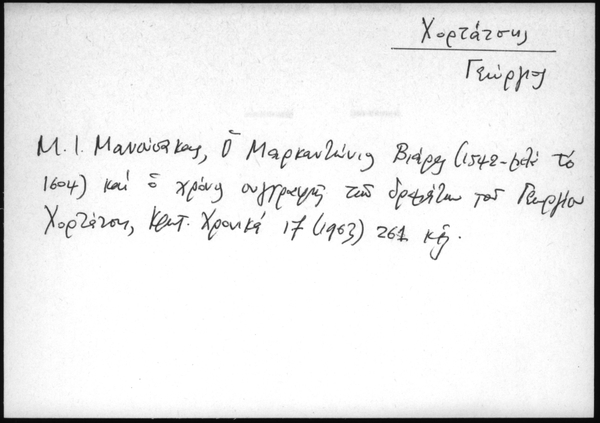 Χορτάτσης
Γεώργιος
Μ. Ι. Μανούσακας, Ὁ Μαρκαντώνιος Βιάρος (1542-μετά τό
1604) καί ὁ χρόνος συγγραφῆς τῶν δραμάτων τοῦ Γεωργίου
Χορτάτση, Κρητ. Χρονικά 17 (1963) 261 κἑ.